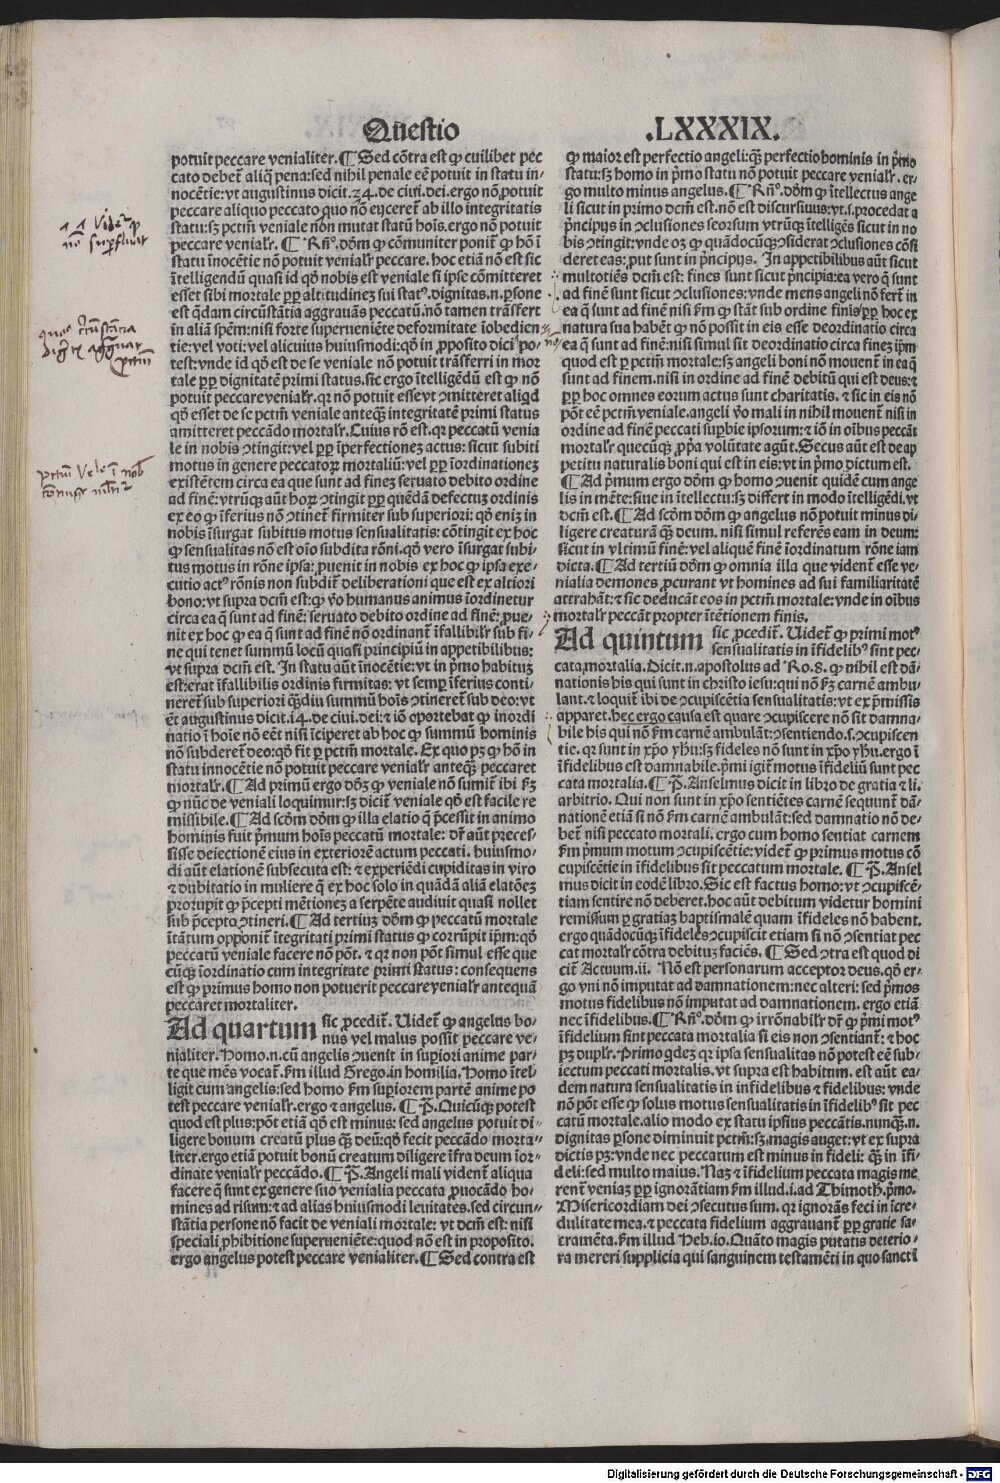 Questio
.LXXXIX.
potuit peccare venialiter. ¶ Sed cõtra est ꝙ cuilibet pec
cato debet̃ aliq̃ pena: sed nihil penale eẽ potuit in statu in-
nocẽtie: vt augustinus dicit .24. de ciui. dei. ergo nõ potuit
peccare aliquo peccato quo nõ eijceret̃ ab illo integritatis
statu: sꝫ pctm̃ veniale non mutat statũ hoĩs. ergo nõ potuit
peccare venialr̃. ¶ Rñ°. dõm ꝙ cõmuniter ponit̃ ꝙ hõ ĩ
statu ĩnocẽtie nõ potuit venialr̃ peccare. hoc etiã nõ est sic
ĩtelligendũ quasi id qõ nobis est veniale si ipse cõmitteret
esset sibi mortale ꝓp̃ altitudineꝫ sui statꝰ. dignitas .n. ꝑsone
est q̃dam circũstãtia aggrauãs peccatũ. nõ tamen trãsfert
in aliã spẽm: nisi forte superueniẽte deformitate ĩobedien-
tie: vel voti: vel alicuius huiusmodi: qõ in ꝓposito dici po-
test: vnde id qõ est de se veniale nõ potuit trãsferri in mor
tale ꝓp̃ dignitatẽ primi status. sic ergo ĩtelligẽdũ est ꝙ nõ
potuit peccare venialr̃. qr nõ potuit esse vt ɔmitteret aliqd
qõ esset de se pctm̃ veniale anteqꝫ integritatẽ primi status
amitteret peccãdo mortalr̃. Cuius rõ est. qr peccatũ venia
le in nobis ɔtingit: vel ꝓp̃ ĩperfectioneꝫ actus: sicut subiti
motus in genere peccatoꝝ mortaliũ: vel ꝓp̃ ĩordinationeꝫ
existẽtem circa ea que sunt ad fineꝫ seruato debito ordine
ad finẽ: vtrũqꝫ aũt hoꝝ ɔtingit ꝓp̃ quẽdã defectuꝫ ordinis
ex eo ꝙ ĩferius nõ ɔtinet̃ firmiter sub superiori: qõ eniꝫ in
nobis ĩsurgat subitus motus sensualitatis: cõtingit ex hoc
ꝙ sensualitas nõ est oĩo subdita rõni. qõ vero ĩsurgat subi-
tus motus in rõne ipsa: ꝓuenit in nobis ex hoc ꝙ ipsa exe-
cutio actꝰ rõnis non subdit̃ deliberationi que est ex altiori
bono: vt supra dcm̃ est: ꝙ v̾o humanus animus ĩordinetur
circa ea q̃ sunt ad finẽ: seruato debito ordine ad finẽ: ꝓue-
nit ex hoc ꝙ ea q̃ sunt ad finẽ nõ ordinant̃ ĩfallibilr̃ sub fi-
ne qui tenet summũ locũ quasi principiũ in appetibilibus:
vt supra dcm̃ est. In statu aũt ĩnocẽtie: vt in pᵒmo habituꝫ
est: erat ĩfallibilis ordinis firmitas: vt semꝑ ĩferius conti-
neret̃ sub superiori qᷓdiu summũ hoĩs ɔtineret̃ sub deo: vt
ẽt augustinus dicit .14. de ciui. dei: ⁊ iõ oportebat ꝙ inordi
natio ĩ hoĩe nõ eẽt nisi ĩciperet ab hoc ꝙ summũ hominis
nõ subderet̃ deo: qõ fit ꝑ pctm̃ mortale. Ex quo pꝫ ꝙ hõ in
statu innocẽtie nõ potuit peccare venialr̃ anteqꝫ peccaret
mortalr̃. ¶ Ad primũ ergo dõꝫ ꝙ veniale nõ sumit̃ ibi ẜm
ꝙ nũc de veniali loquimur: sꝫ dicit̃ veniale qõ est facile re
missibile. ¶ Ad scõm dõm ꝙ illa elatio q̃ p̃cessit in animo
hominis fuit pᵒmum hoĩs peccatũ mortale: dr̃ aũt preces-
sisse deiectionẽ eius in exteriorẽ actum peccati. huiusmo-
di aũt elationẽ subsecuta est: ⁊ experiẽdi cupiditas in viro
⁊ dubitatio in muliere q̃ ex hoc solo in quãdã aliã elatõeꝫ
prorupit ꝙ p̃cepti mẽtionẽ a serpẽte audiuit quasi nollet
sub p̃cepto ɔtineri. ¶ Ad tertiuꝫ dõm ꝙ peccatũ mortale
ĩtãtum opponit̃ ĩtegritati primi status ꝙ corrũpit ipm̃: qõ
peccatũ veniale facere nõ põt. ⁊ qr non põt simul esse que
cũqꝫ ĩordinatio cum integritate primi status: consequens
est ꝙ primus homo non potuerit peccare venialr̃ antequã
peccaret mortaliter.
Ad quartum sic ꝓcedit̃. Videt̃ ꝙ angelus bo-
nus vel malus possit peccare ve-
nialiter. Homo .n. cũ angelis ɔuenit in supiori anime par-
te que mẽs vocat̃. ẜm illud Grego. in homilia. Homo ĩtel-
ligit cum angelis: sed homo ẜm supiorem partẽ anime po
test peccare venialr̃. ergo ⁊ angelus. ¶ P̃. Quicũqꝫ potest
quod est plus: põt etiã qõ est minus: sed angelus potuit di-
ligere bonum creatũ plus qꝫ deũ: qõ fecit peccãdo morta-
liter. ergo etiã potuit bonũ creatum diligere ĩfra deum ĩor-
dinate venialr̃ peccãdo. ¶ P̃. Angeli mali vident̃ aliqua
facere q̃ sunt ex genere suo venialia peccata ꝓuocãdo ho-
mines ad risum: ⁊ ad alias huiusmodi leuitates. sed circun-
stãtia persone nõ facit de veniali mortale: vt dcm̃ est: nisi
speciali ꝓhibitione superueniẽte: quod nõ est in proposito.
ergo angelus potest peccare venialiter. ¶ Sed contra est
ꝙ maior est perfectio angeli: qꝫ perfectio hominis in pᵒmo
statu: sꝫ homo in pᵒmo statu nõ potuit peccare venialr̃. er-
go multo minus angelus. ¶ Rñ°. dõm ꝙ ĩtellectus ange
li sicut in primo dcm̃ est. nõ est discursiuus: vt .s. procedat a
pᵒncipijs in ɔclusiones seorsum vtrũqꝫ ĩtelligẽs sicut in no
bis ɔtingit: vnde oꝫ ꝙ quãdocũqꝫ ɔsiderat ɔclusiones cõsi
deret eas: ꝓut sunt in pᵒncipijs. In appetibilibus aũt sicut
multotiẽs dcm̃ est: fines sunt sicut pᵒncipia: ea vero q̃ sunt
ad finẽ sunt sicut ɔclusiones: vnde mens angeli nõ fert̃ in
ea q̃ sunt ad finẽ nisi ẜm ꝙ stãt sub ordine finis: ꝓp̃ hoc ex
natura sua habẽt ꝙ nõ possit in eis esse deordinatio circa
ea q̃ sunt ad finẽ: nisi simul sit deordinatio circa fineꝫ ipm̃
quod est ꝑ pctm̃ mortale: sꝫ angeli boni nõ mouent̃ in ea q̃
sunt ad finem. nisi in ordine ad finẽ debitũ qui est deus: ⁊
ꝓp̃ hoc omnes eorum actus sunt charitatis. ⁊ sic in eis nõ
põt eẽ pctm̃ veniale. angeli v̾o mali in nihil mouent̃ nisi in
ordine ad finẽ peccati superbie ipsorum: ⁊ iõ in oĩbus peccãt
mortalr̃ quecũqꝫ ꝓpᵒa volũtate agũt. Secus aũt est de ap
petitu naturalis boni qui est in eis: vt in pᵒmo dictum est.
¶ Ad pᵒmum ergo dõm ꝙ homo ɔuenit quidẽ cum ange
lis in mẽte: siue in ĩtellectu: sꝫ differt in modo ĩtelligẽdi. vt
dcm̃ est. ¶ Ad scõm dõm ꝙ angelus nõ potuit minus di-
ligere creaturã qꝫ deum. nisi simul referẽs eam in deum:
sicut in vltimũ finẽ: vel aliquẽ finẽ ĩordinatum rõne iam
dicta. ¶ Ad tertiũ dõm ꝙ omnia illa que vident̃ esse ve-
nialia demones ꝓcurant vt homines ad sui familiaritatẽ
attrahãt: ⁊ sic deducãt eos in pctm̃ mortale: vnde in oĩbus
mortalr̃ peccãt propter ĩtẽtionem finis.
Ad quintum sic ꝓcedit̃. Videt̃ ꝙ primi motꝰ
sensualitatis in ĩfidelibꝰ sint pec-
cata mortalia. Dicit .n. apostolus ad Ro. 8. ꝙ nihil est dã-
nationis his qui sunt in christo iesu: qui nõ ẜm carnẽ ambu-
lant. ⁊ loquit̃ ibi de ɔcupiscẽtia sensualitatis: vt ex p̃missis
apparet. hec ergo causa est quare ɔcupiscere nõ sit damna-
bile his qui nõ ẜm carnẽ ambulãt: ɔsentiendo .s. ɔcupiscen
tie. qr sunt in xp̃o yhu: sꝫ fideles nõ sunt in xp̃o yhu. ergo ĩ
ĩfidelibus est damnabile. pᵒmi igit̃ motus ĩfideliũ sunt pec
cata mortalia. ¶ P̃. Anselmus dicit in libro de gratia ⁊ li.
arbitrio. Qui non sunt in xp̃o sentiẽtes carnẽ sequunt̃ dã-
nationẽ etiã si nõ ẜm carnẽ ambulãt: sed damnatio nõ de-
bet̃ nisi peccato mortali. ergo cum homo sentiat carnem
ẜm pᵒmum motum ɔcupiscẽtie: videt̃ ꝙ primus motus cõ
cupiscẽtie in ĩfidelibus sit peccatum mortale. ¶ P̃. Ansel
mus dicit in eodẽ libro. Sic est factus homo: vt ɔcupiscẽ-
tiam sentire nõ deberet. hoc aũt debitum videtur homini
remissum ꝑ gratiaꝫ baptismalẽ quam ĩfideles nõ habent.
ergo quãdocũqꝫ ĩfideles ɔcupiscit etiam si nõ ɔsentiat pec
cat mortalr̃ cõtra debituꝫ faciẽs. ¶ Sed ɔtra est quod di
cit̃ Actuum .ii. Nõ est personarum acceptor deus. qõ er-
go vni nõ imputat ad damnationem: nec alteri: sed pᵒmos
motus fidelibus nõ imputat ad damnationem. ergo etiã
nec ĩfidelibus. ¶ Rñ°. dõm ꝙ irrõnabilr̃ dr̃ ꝙ pᵒmi motꝰ
ĩfidelium sint peccata mortalia si eis non ɔsentiant̃: ⁊ hoc
pꝫ duplr̃. Primo qdeꝫ qr ipsa sensualitas nõ potest eẽ sub-
iectum peccati mortalis. vt supra est habitum. est aũt ea-
dem natura sensualitatis in infidelibus ⁊ fidelibus: vnde
nõ põt esse ꝙ solus motus sensualitatis in ĩfidelibꝰ sit pec
catũ mortale. alio modo ex statu ipsius peccãtis. nunqꝫ .n.
dignitas ꝑsone diminuit pctm̃: sꝫ magis auget: vt ex supra
dictis pꝫ: vnde nec peccatum est minus in fideli: qꝫ in ĩfi-
deli: sed multo maius. Naꝫ ⁊ ĩfidelium peccata magis me
rent̃ veniaꝫ ꝓp̃ ignorãtiam ẜm illud .i. ad Thimoth. pᵒmo.
Misericordiam dei ɔsecutus sum. qr ignorãs feci in icre-
dulitate mea. ⁊ peccata fidelium aggrauant̃ ꝓp̃ gratie sa-
cramẽta. ẜm illud Heb. io. Quãto magis putatis deterio-
ra mereri supplicia qui sanguinem testamẽti in quo sancti
Digitalisierung gefördert durch die Deutsche Forschungsgemeinschaft - DFG